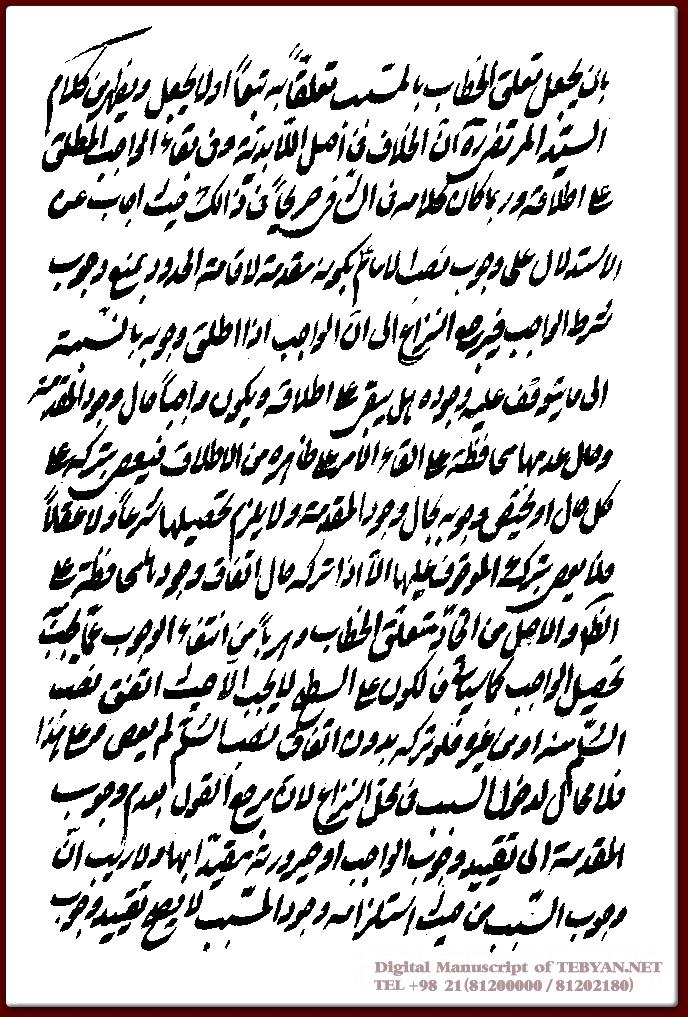 بان يجعل تعلق الخطاب بالمسبب تعلقاً به تبعاً او لا يجعل ويظهر من كلام
السيد المرتضى ره ان الخلاف فى اصل اللابدية وفى بقاء الواجب المطلق
على اطلاقه وربما كان كلامه فى الشافى صريحاً فى ذالك حيث اجاب عن
الاستدلال على وجوب نصب الامام بكونه مقدمة لاقامة الحدود بمنع وجوب
شرط الواجب فيرجع النزاع الى ان الواجب اذا اطلق وجوبه بالنسبة
الى ما يتوقف عليه وجوده هل يبقى على اطلاقه ويكون واجباً حال وجود المقدمة
وحال عدمها محافظة على ابقاء الامر على ظاهره من الاطلاق فيعصى بتركه على
كل حال او يختص وجوبه بحال وجود المقدمة ولا يلزم تحصيلها شرعاً ولا عقلاً
فلا يعصى بترك الموقوف عليها الا اذا تركه حال اتفاق وجودها محافظة على
الظ والاصل من اتحاد متعلق الخطاب وهرباً من انتفاء الوجوب عما يجب
تحصيل الواجب كالسيد فى الكون على السطح لا يجب الا حيث اتفق نصب
السلم منه او من غيره فلو تركه بدون اتفاق نصب السلم لم يعص وعلى هذا
فلا مجال لدخول السبب فى محل النزاع لان مرجع القول بعدم وجوب
المقدمة الى تقييد وجوب الواجب او صيرورته مقيداً بها ولا ريب ان
وجوب السبب من حيث استلزامه وجود المسبب لا يصح تقييد وجوب
Digital Manuscript of TEBYAN.NET
TEL +98 21(81200000 / 81202180)